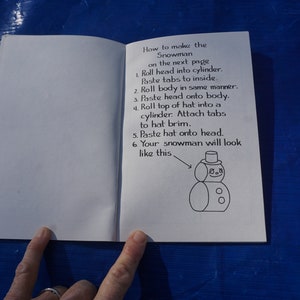 How to make the
Snowman
on the next page
1. Roll head into cylinder.
Paste tabs to inside.
2. Roll body in same manner.
3. Paste head onto body.
4. Roll top of hat into a
cylinder. Attach tabs
to hat brim.
5. Paste hat onto head.
6. Your snowman will look
like this